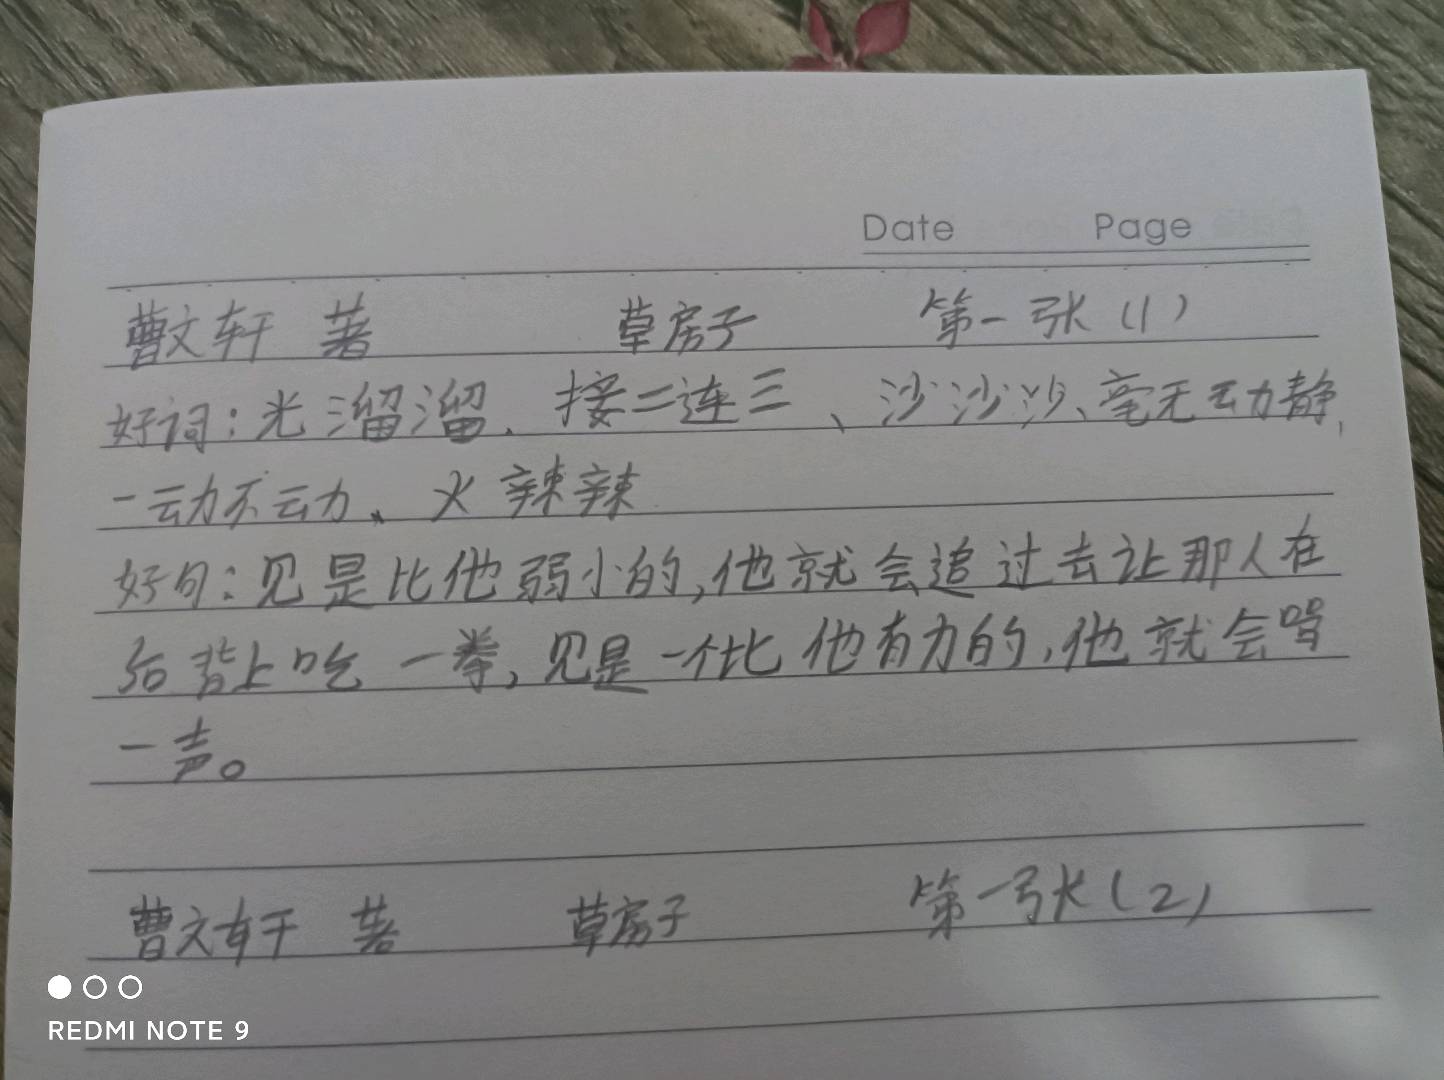 Date Page
曹文轩 著 草房子 第一张(1)
好词:光溜溜、接二连三、沙沙沙、毫无动静、
一动不动、火辣辣
好句:见是比他弱小的,他就会追过去让那人在
后背上吃一拳,见是一个比他有力的,他就会骂
一声。
曹文轩 著 草房子 第一张(2)
REDMI NOTE 9